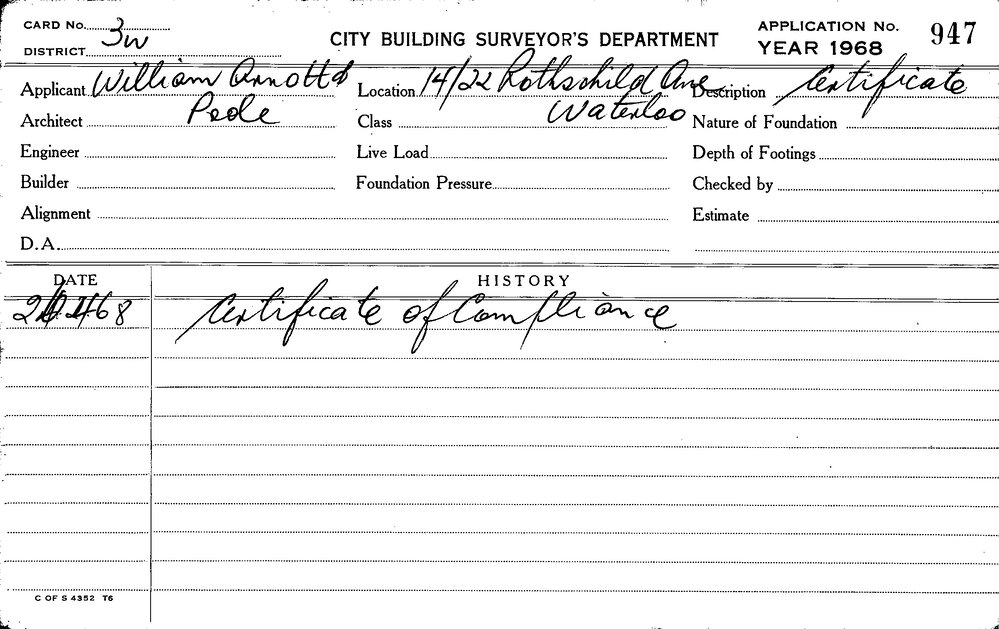 CARD No. 3w
DISTRICT
CITY BUILDING SURVEYOR'S DEPARTMENT
APPLICATION No. 947
YEAR 1968
Applicant William Arnott & Location 14/22 Rothschild Ave Description Certificate
Architect Poole Class Waterloo Nature of Foundation
Engineer Live Load Depth of Footings
Builder Foundation Pressure Checked by
Alignment Estimate
D.A.
DATE HISTORY
68 Certificate of Compliance
C OF S 4352 T6